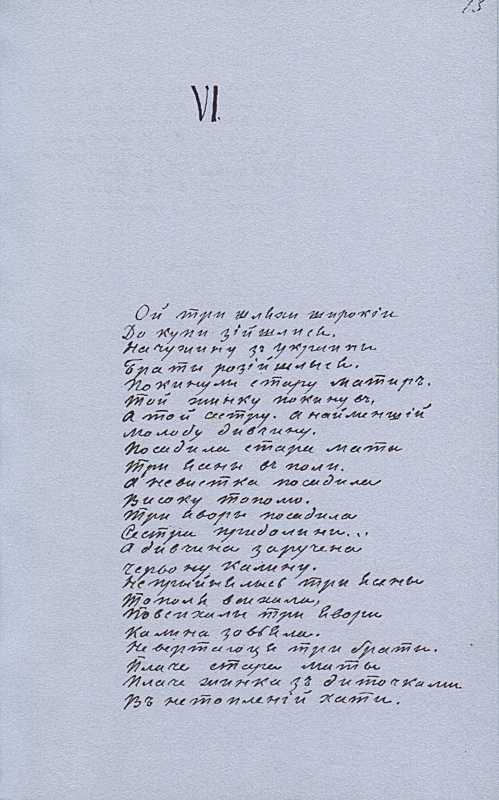 13
VI.
Ой три шляхи широкіи
До купи зійшлись.
На чужину зъ украины
Брати розійшлысь.
Покинули стару матирь.
Той жинку покинувъ,
А той сестру. а найменшій
Молоду дивчину.
Посадила стара маты
Три ясены въ поли.
А невистка посадила
Високу тополю.
Три яворы посадила
Сестра при долини...
А дивчина заручена
Червону калину.
Непрыйнялысь три ясены
Тополя всихала,
Повсихали три явори
Калина завъяла.
Невертаюця три браты.
Плаче стара маты
Плаче жинка зъ диточками
Въ нетопленій хати.